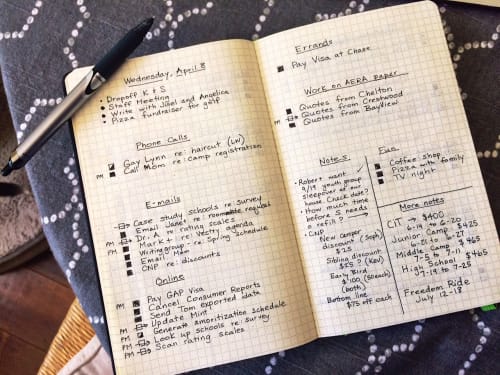 Wednesday, April 8
• Dropoff K + S
• Staff Meeting
• Write with Jewel and Angelica
• Pizza fundraiser for golf
Phone Calls
Gay Lynn re: haircut (LW)
Call Mom re: camp registration
E-mails
PM Case study schools re: survey
Email Janet re: roommate request
PM Dr. A re rating scales
PM Mark + re: Vestry agenda
Writing group re: Spring Schedule
Email Mom
ONP re: discounts
Online
PM Pay GAP Visa
Cancel Consumer Reports
Send Tom exported data
PM Update Mint
Generate amortization schedule
PM Look up schools re: survey
PM Scan rating scales
Errands
Pay Visa at Chase
Work on AERA paper
Quotes from Chelton
PM Quotes from Crestwood
Quotes from Bayview
Notes
• Robert want
9/19 youth group
sleepover at our
house. Check date?
• How much time
before S needs
a refill?
• Camp
New camper
discount (Soph)
$25
Sibling discount
$25? (Kev)
Early Bird
$100 (50 each)
(both)
Bottom line
$75 off each
Fun
Coffee shop
Pizza with family
TV night
More notes
CIT → $400
6-14 to 6-20
Junior Camp $425
6-21 to 6-27
Middle Camp $465
7-5 to 7-11
High School $465
7-19 to 7-25
Freedom Ride
July 12-18